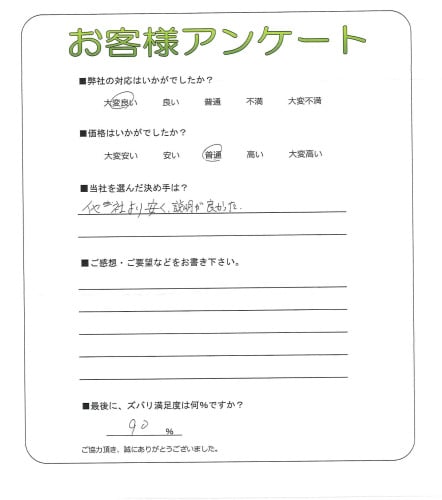 お客様アンケート
■弊社の対応はいかがでしたか？
大変良い 良い 普通 不満 大変不満
■価格はいかがでしたか？
大変安い 安い 普通 高い 大変高い
■当社を選んだ決め手は？
他社より安く、説明が良かった。
■ご感想・ご要望などをお書き下さい。
■最後に、ズバリ満足度は何％ですか？
90 ％
ご協力頂き、誠にありがとうございました。